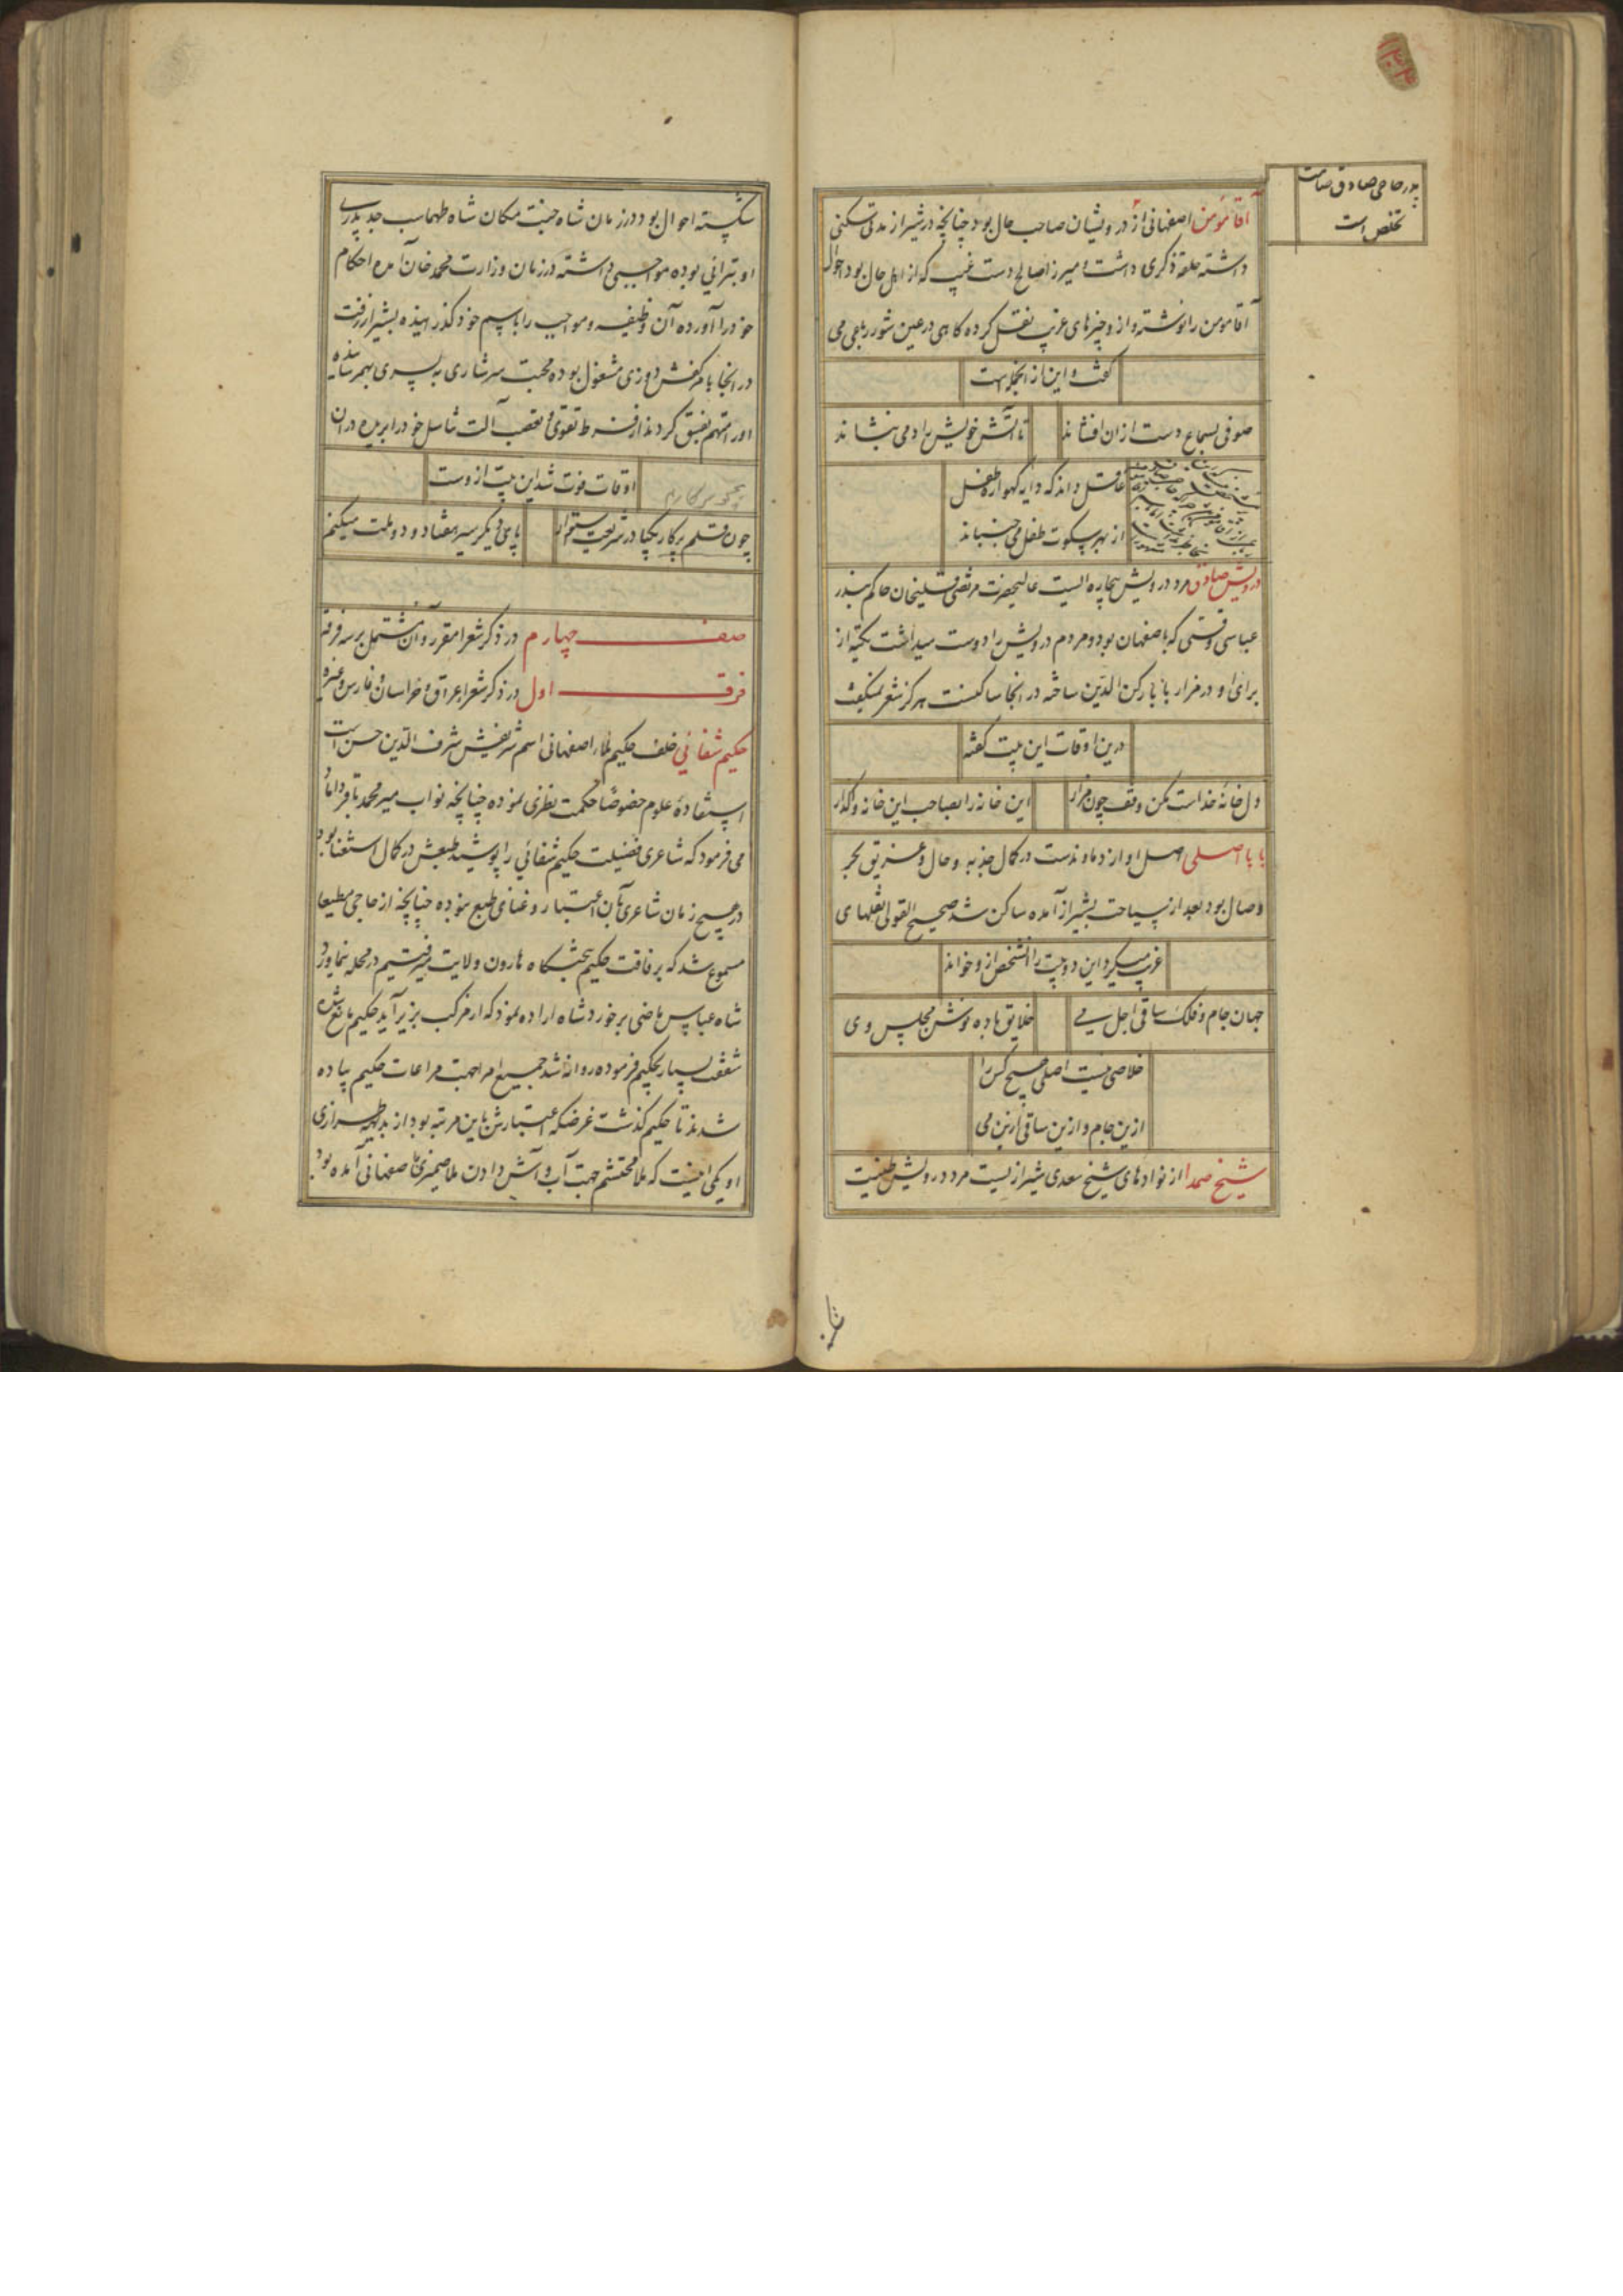 پدر حاجی صادق صامت
تخلص است
آقا مؤمن اصفهانی از درویشان صاحب حال بود چنانچه در شیراز مدتی سکنی
داشته حلقه ذکری داشت و میرزا صالح دست غیب که از اهل حال بود احوال
آقا مومن را نوشته و از و چیزهای غریب نقل کرده کاهی در عین شور رباعی می
کفت و این از آنجمله است
صوفی بسماع دست از ان افشاند
تا آتش خویش را دمی بنشاند
عاقل داند که دایه کهواره طفل
از بهر سکوت طفل می جنباند
درویش صادق مرد درویش بیچاره ایست عالیحضرت مرتضی قلیخان حاکم بندر
عباسی وقتی که باصفهان بود و مردم درویش را دوست میداشت تکیه از
برای او در مزار بابا رکن الدین ساخته در انجا ساکنست هرکز شعر نمیکفت
درین اوقات این بیت کفته
دل خانه خداست مکن وقف چون مزار
این خانه را بصاحب این خانه واکذار
بابا اصلی اصل او از دماوندست در کمال جذبه و حال و غریق بحر
وصال بود بعد از سیاحت بشیراز آمده ساکن شد صحیح القولی نقلهای
غریب میکرد این دو بیت را آنشخص از و خواند
جهان جام و فلک ساقی اجل می
خلایق باده نوش مجلس وی
خلاصی نیست اصلی هیچ کس را
ازین جام و ازین ساقی ازین می
شیخ صمدا از نوادهای شیخ سعدی شیرازیست مرد درویش طینت
شکسته احوال بود در زمان شاه جنت مکان شاه طهماسب جد پدری
او بتراني بوده مواجبی داشته در زمان وزارت محمد خان آمده احکام
خود را آورده آن وظیفه و مواجب را باسم خود کذرانیده بشیراز رفت
در انجا بامر کفش دوزی مشغول بوده محبت سرشاری به پسری بهمرسانده
او را متهم بفسق کردند از فرط تقوی و تعصب آلت تناسل خود را بریده در ان
اوقات فوت شد این بیت ازوست
چون قلم پرکار یکپا در شریعت استوار
پای دیکر سیر هفتاد و دو ملت میکنم
صف چهارم در ذکر شعرا مقرر و آن مشتمل بر سه فرقه
فرقه اول در ذکر شعرا عراق و خراسان و فارس و غیره
حکیم شفائي خلف حکیم ملا، اصفهانی اسم شریفش شرف الدین حسن است
استفادهٔ علوم خصوصًا حکمت نظری نموده چنانچه نواب میر محمد باقر داماد
می فرمود که شاعری فضیلت حکیم شفائي را پوشید طبعش در کمال استغنا بود
در هیچ زمان شاعری بآن اعتبار و غنای طبع نبوده چنانچه از حاجی مطیعا
مسموع شد که برفاقت حکیم بحثکاه هارون ولایت میرفتیم در محله نماورد
شاه عباس ماضی برخورد شاه اراده نمود که از مرکب بزیر آید حکیم مانع شده
شفقت بسیار بحکیم فرموده روانه شد جمیع امرا بجهت مراعات حکیم پیاده
شدند تا حکیم کذشت غرضکه اعتبارش باین مرتبه بود از بدیهه طرازی
او یکی اینست که ملا محتشم جهت آب و آش دادن ملا ضمیری اصفهانی آمده بود